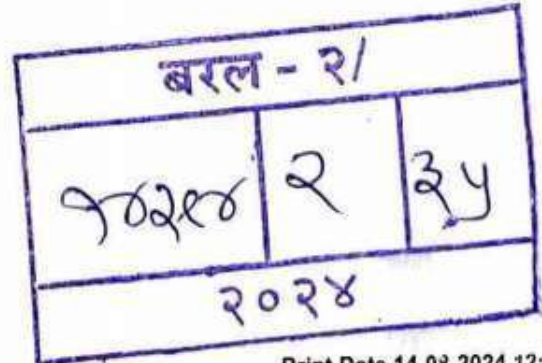 बरल - २/
२ ३५
२०२४
Print Date 14-08-2024 12: